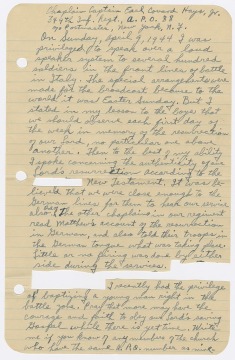 Chaplain Captain Earl Edward Hays, Jr.
349th Inf. Regt., A.P.O. 88
% Postmaster, New York, N.Y.
On Sunday, April 9, 1944 I was
privileged to speak over a loud
speaker system to several hundred
soldiers in the front lines of battle
in Italy. The special arrangements were
made for the broadcast because to the
world it was Easter Sunday. But I
stated in my lesson to the boys that
we should observe each first day of
the week in memory of the resurrection
of our Lord, no particular one above
another. Then to the best of my ability
I spoke concerning the authenticity of our
Lord's resurrection according to the
New Testament. It was be-
lieved that we were close enough to the
German lines for them to hear our service
also. The other chaplains in our regiment
read Matthew's account of the resurrection
in German, and also told their
the German tongue what was taking place.
Little or no firing was done by either
side during the services.
I recently had the privilege
of baptizing a young man right in the
battle zone. Pray that we may have the
courage and faith to
Gospel while there is yet time. Write
me if you know of any members of the church
who have the same A.P.O. number as mine.